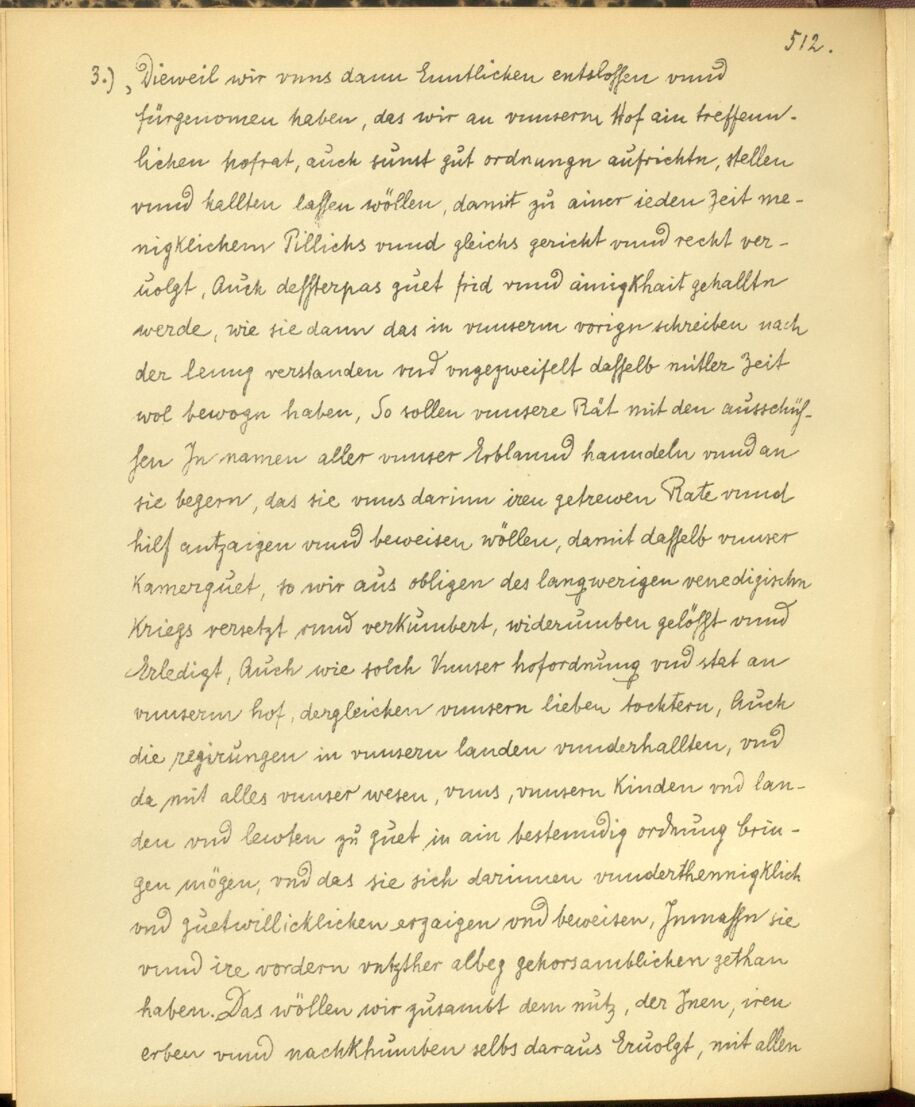 512.
3.) „Dieweil wir vnns dann Enntlichen entslossen vnnd
fürgenomen haben, das wir an vnnserm Hof ain treffenn-
lichen hofrat, auch sunst gut ordnungn aufrichtn, stellen
vnnd hallten lassen wöllen, damit zu ainer ieden Zeit me-
nigklichem Pillichs vnnd gleichs gericht vnnd recht ver-
uolgt, Auch dessterpas guet frid vnnd ainigkhait gehalltn
werde, wie sie dann das in vnnserm vorign schreiben nach
der lenng verstanden vnd vngezweifelt dasselb mitler Zeit
wol bewogn haben, So sollen vnnsere Rät mit den ausschüs-
sen In namen aller vnnser Erblannd hanndeln vnnd an
sie begern, das sie vnns darinn iren getrewen Rate vnnd
hilf antzaigen vnnd beweisen wöllen, damit dasselb vnnser
Kamerguet, so wir aus obligen des langwerigen venedigischn
Kriegs versetzt vnnd verkumbert, widerumben gelösst vnnd
Erledigt, Auch wie solch Vnnser hofordnung vnd stat an
vnnserm hof, dergleichen vnnsern lieben tochtern, Auch
die regirungen in vnnsern landen vnnderhallten, vnd
da mit alles vnnser wesen, vnns, vnnsern Kinden vnd lan-
den vnd lewten zu guet in ain bestenndig ordnung brin-
gen mögen, vnd das sie sich darinnen vnnderthennigklich
vnd guetwillicklichen erzaigen vnd beweisen, Inmassn sie
vnnd ire vordern vntzther albeg gehorsamblichen gethan
haben. Das wöllen wir zusambt dem nutz, der Inen, iren
erben vnnd nachkhumben selbs daraus Eruolgt, mit allen